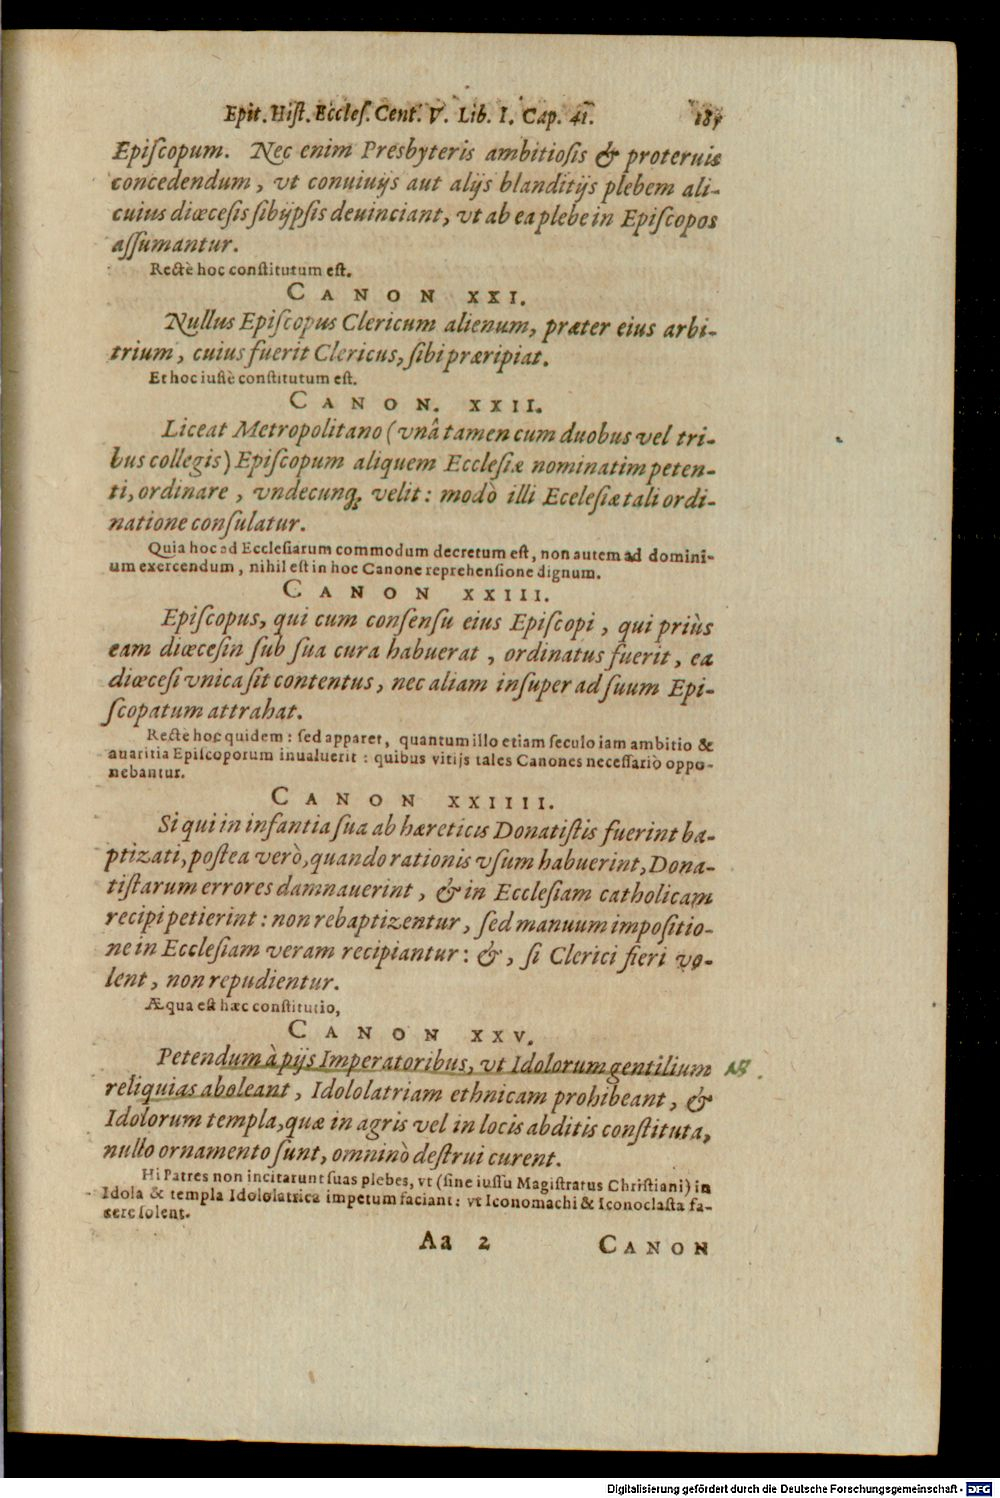 Epit. Hiſt. Eccleſ. Cent. V. Lib. I. Cap. 41. 187
Epiſcopum. Nec enim Presbyteris ambitioſis & proteruis
concedendum, vt conuiuijs aut alijs blanditijs plebem ali-
cuius diœceſis ſibijpſis deuinciant, vt ab ea plebe in Epiſcopos
aſſumantur.
Rectè hoc conſtitutum eſt.
CANON XXI.
Nullus Epiſcopus Clericum alienum, præter eius arbi-
trium, cuius fuerit Clericus, ſibi præripiat.
Et hoc iuſtè conſtitutum eſt.
CANON. XXII.
Liceat Metropolitano (vnâ tamen cum duobus vel tri-
bus collegis) Epiſcopum aliquem Eccleſiæ nominatim peten-
ti, ordinare, vndecunq; velit: modò illi Eceleſiæ tali ordi-
natione conſulatur.
Quia hoc ad Eccleſiarum commodum decretum eſt, non autem ad domini-
um exercendum, nihil eſt in hoc Canone reprehenſione dignum.
CANON XXIII.
Epiſcopus, qui cum conſenſu eius Epiſcopi, qui priùs
eam diœceſin ſub ſua cura habuerat, ordinatus fuerit, ea
diœceſi vnica ſit contentus, nec aliam inſuper ad ſuum Epi-
ſcopatum attrahat.
Rectè hoc quidem: ſed apparet, quantum illo etiam ſeculo iam ambitio &
auaritia Epiſcoporum inualuerit: quibus vitijs tales Canones neceſſariò oppo-
nebantur.
CANON XXIIII.
Si qui in infantia ſua ab hæreticis Donatiſtis fuerint ba-
ptizati, poſtea verò, quando rationis vſum habuerint, Dona-
tiſtarum errores damnauerint, & in Eccleſiam catholicam
recipi petierint: non rebaptizentur, ſed manuum impoſitio-
ne in Eccleſiam veram recipiantur: &, ſi Clerici fieri vo-
lent, non repudientur.
Æqua eſt hæc conſtitutio,
CANON XXV.
Petendum à pijs Imperatoribus, vt Idolorum gentilium
reliquias aboleant, Idololatriam ethnicam prohibeant, &
Idolorum templa, quæ in agris vel in locis abditis conſtituta,
nullo ornamento ſunt, omninò deſtrui curent.
Hi Patres non incitarunt ſuas plebes, vt (ſine iuſſu Magiſtratus Chriſtiani) in
Idola & templa Idololatrica impetum faciant: vt Iconomachi & Iconoclaſta fa-
cere ſolent.
Aa 2 CANON
Digitalisierung gefördert durch die Deutsche Forschungsgemeinschaft - DFG